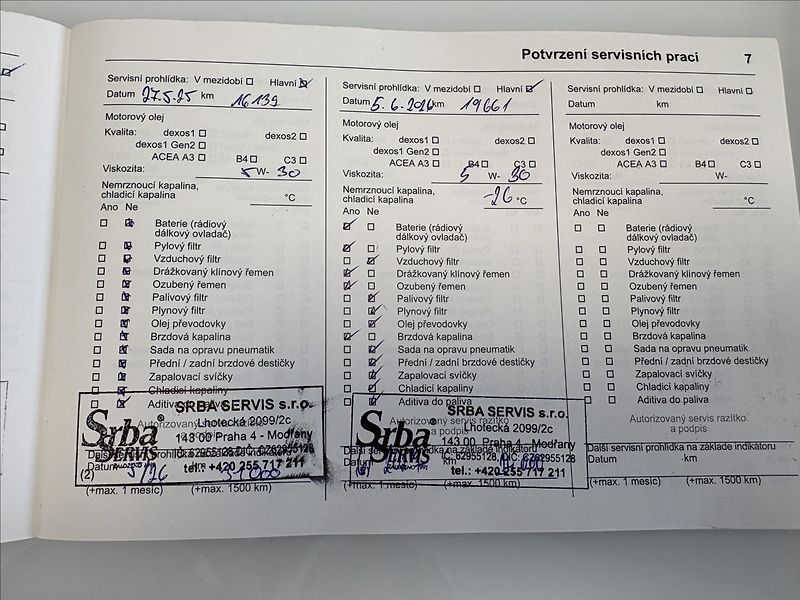 Potvrzení servisních prací 7
Servisní prohlídka: V mezidobí Hlavní
Datum 27.5.25 km 16139
Motorový olej
Kvalita: dexos1 dexos2
dexos1 Gen2
ACEA A3 B4 C3
Viskozita: 5 W- 30
Nemrznoucí kapalina,
chladicí kapalina °C
Ano Ne
Baterie (rádiový
dálkový ovladač)
Pylový filtr
Vzduchový filtr
Drážkovaný klínový řemen
Ozubený řemen
Palivový filtr
Plynový filtr
Olej převodovky
Brzdová kapalina
Sada na opravu pneumatik
Přední / zadní brzdové destičky
Zapalovací svíčky
Chladicí kapaliny
Aditiva do paliva
Srba SERVIS
SRBA SERVIS s.r.o.
Lhotecká 2099/2c
143 00 Praha 4 - Modřany
IČ: 62955128, DIČ: CZ62955128
tel.: +420 255 717 211
Datum 5/26
(2)
(+max. 1 měsíc) (+max. 1500 km)
Servisní prohlídka: V mezidobí Hlavní
Datum 5.6. km 19661
Motorový olej
Kvalita: dexos1 dexos2
dexos1 Gen2
ACEA A3 B4 C3
Viskozita: 5 W- 30
Nemrznoucí kapalina,
chladicí kapalina -26 °C
Ano Ne
Baterie (rádiový
dálkový ovladač)
Pylový filtr
Vzduchový filtr
Drážkovaný klínový řemen
Ozubený řemen
Palivový filtr
Plynový filtr
Olej převodovky
Brzdová kapalina
Sada na opravu pneumatik
Přední / zadní brzdové destičky
Zapalovací svíčky
Chladicí kapaliny
Aditiva do paliva
Autorizovaný servis razítko
a podpis
Srba SERVIS
SRBA SERVIS s.r.o.
Lhotecká 2099/2c
143 00 Praha 4 - Modřany
IČ: 62955128, DIČ: CZ62955128
tel.: +420 255 717 211
Další servisní prohlídka na základě indikátoru
Datum km
(+max. 1 měsíc) (+max. 1500 km)
Servisní prohlídka: V mezidobí Hlavní
Datum km
Motorový olej
Kvalita: dexos1 dexos2
dexos1 Gen2
ACEA A3 B4 C3
Viskozita: W-
Nemrznoucí kapalina,
chladicí kapalina °C
Ano Ne
Baterie (rádiový
dálkový ovladač)
Pylový filtr
Vzduchový filtr
Drážkovaný klínový řemen
Ozubený řemen
Palivový filtr
Plynový filtr
Olej převodovky
Brzdová kapalina
Sada na opravu pneumatik
Přední / zadní brzdové destičky
Zapalovací svíčky
Chladicí kapaliny
Aditiva do paliva
Autorizovaný servis razítko
a podpis
Další servisní prohlídka na základě indikátoru
Datum km
(+max. 1 měsíc) (+max. 1500 km)